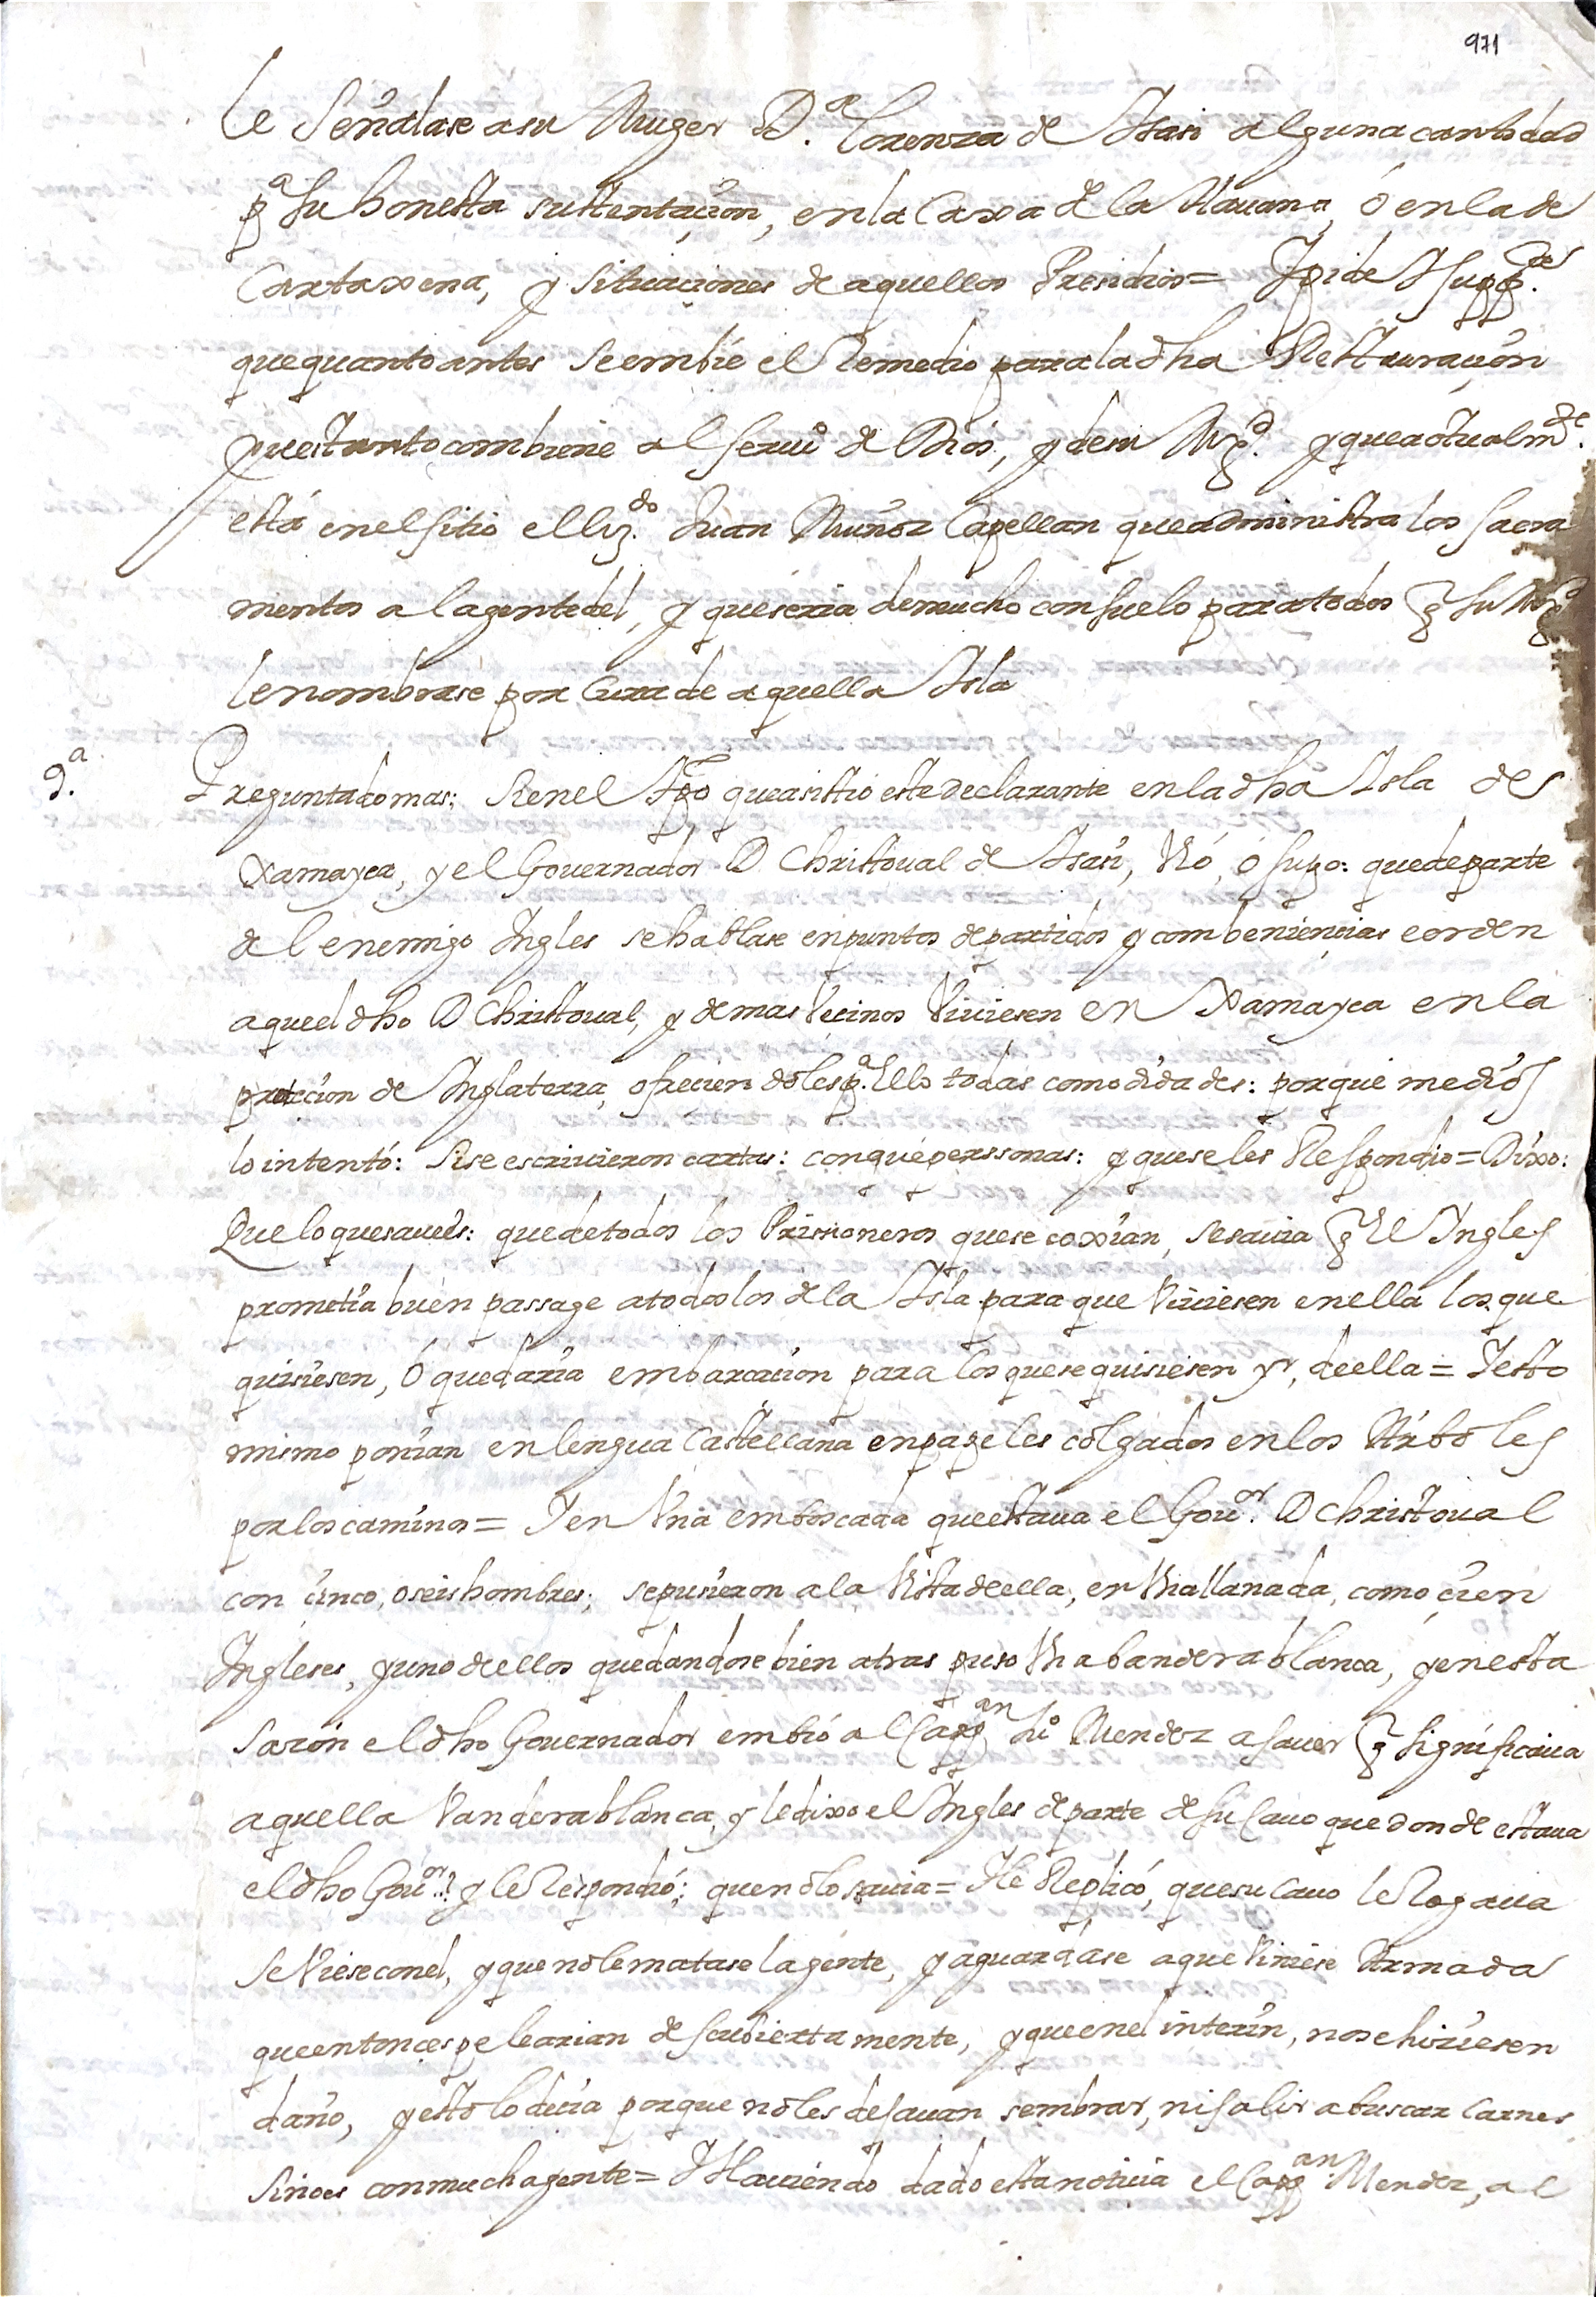 971
le señalase a su Muger D.ª Lorenza de Isasi alguna cantidad
p.ª su honesta sustentaçion, en la Caxa de la Hauana, ó en la de
Cartaxena, y situaciones de aquellos Presidios = Y pide
que quanto antes se embíe el remedio para la dha Restauraçion
pues tanto combiene al seruiº de Dios, y de su Mg.d y que actualm.te
está en el sitio el liz.do Juan Muñoz Capellan que administra los sacra
mentos a la gente del, y que seria de mucho consuelo para todos q su Mg.d
le nombrase por Cura de aquella Isla
9.ª Preguntado mas: Si en el tpo que asistio este declarante en la dha Isla de
Xamayca, y el Gouernador D Christoual de Isasi, Vió, ó supo: que de parte
del enemigo Ingles se hablase en puntos de partidos y combeniençias en orden
a que el dho D Christoual, y demas Vecinos Viuiesen en Xamayca en la
protecion de Inglaterra, ofreciendoles p.ª ello todas comodidades: por que medios
lo intentó: si se escriuieron cartas: con qué perssonas: y que se les Respondio = Dixo:
Que lo que saue és: que de todos los Prissioneros que se coxian, se sauia q el Ingles
prometia buen passage a todos los de la Isla para que Viuiesen en ella los que
quisiesen, ó que daria embarcacion para los que se quisiesen yr, de ella = Y esto
mismo ponian en lengua Castellana en papeles colgados en los Árboles
por los caminos = Y en Vna emboscada que estaua el Gou.or D Christoual
con cinco, o seis hombres; se pusieron a la Vista de ella, en Vna llanada, como çien
Ingleses, y uno de ellos quedandose bien atras puso Vna bandera blanca, y en esta
sazón el dho Gouernador embió al Capp.an Juº Mendez a sauer q significaua
aquella Vandera blanca, y le dixo el Ingles de parte de su Cauo que donde estaua
el dho Gou.or? y le Respondió; que no lo sauia = Y le Replicó, que su Cauo le Rogaua
se Viese con el, y que no le matase la gente, y aguardase a que Viniese Armada
que entonces pelearian descubiertamente, y que en el interin, no se hiciesen
daño, y esto lo decia porque no les dexauan sembrar, ni salir a buscar Carnes
sino es con mucha gente = Y Hauiendo dado esta noticia el Capp.an Mendez, al